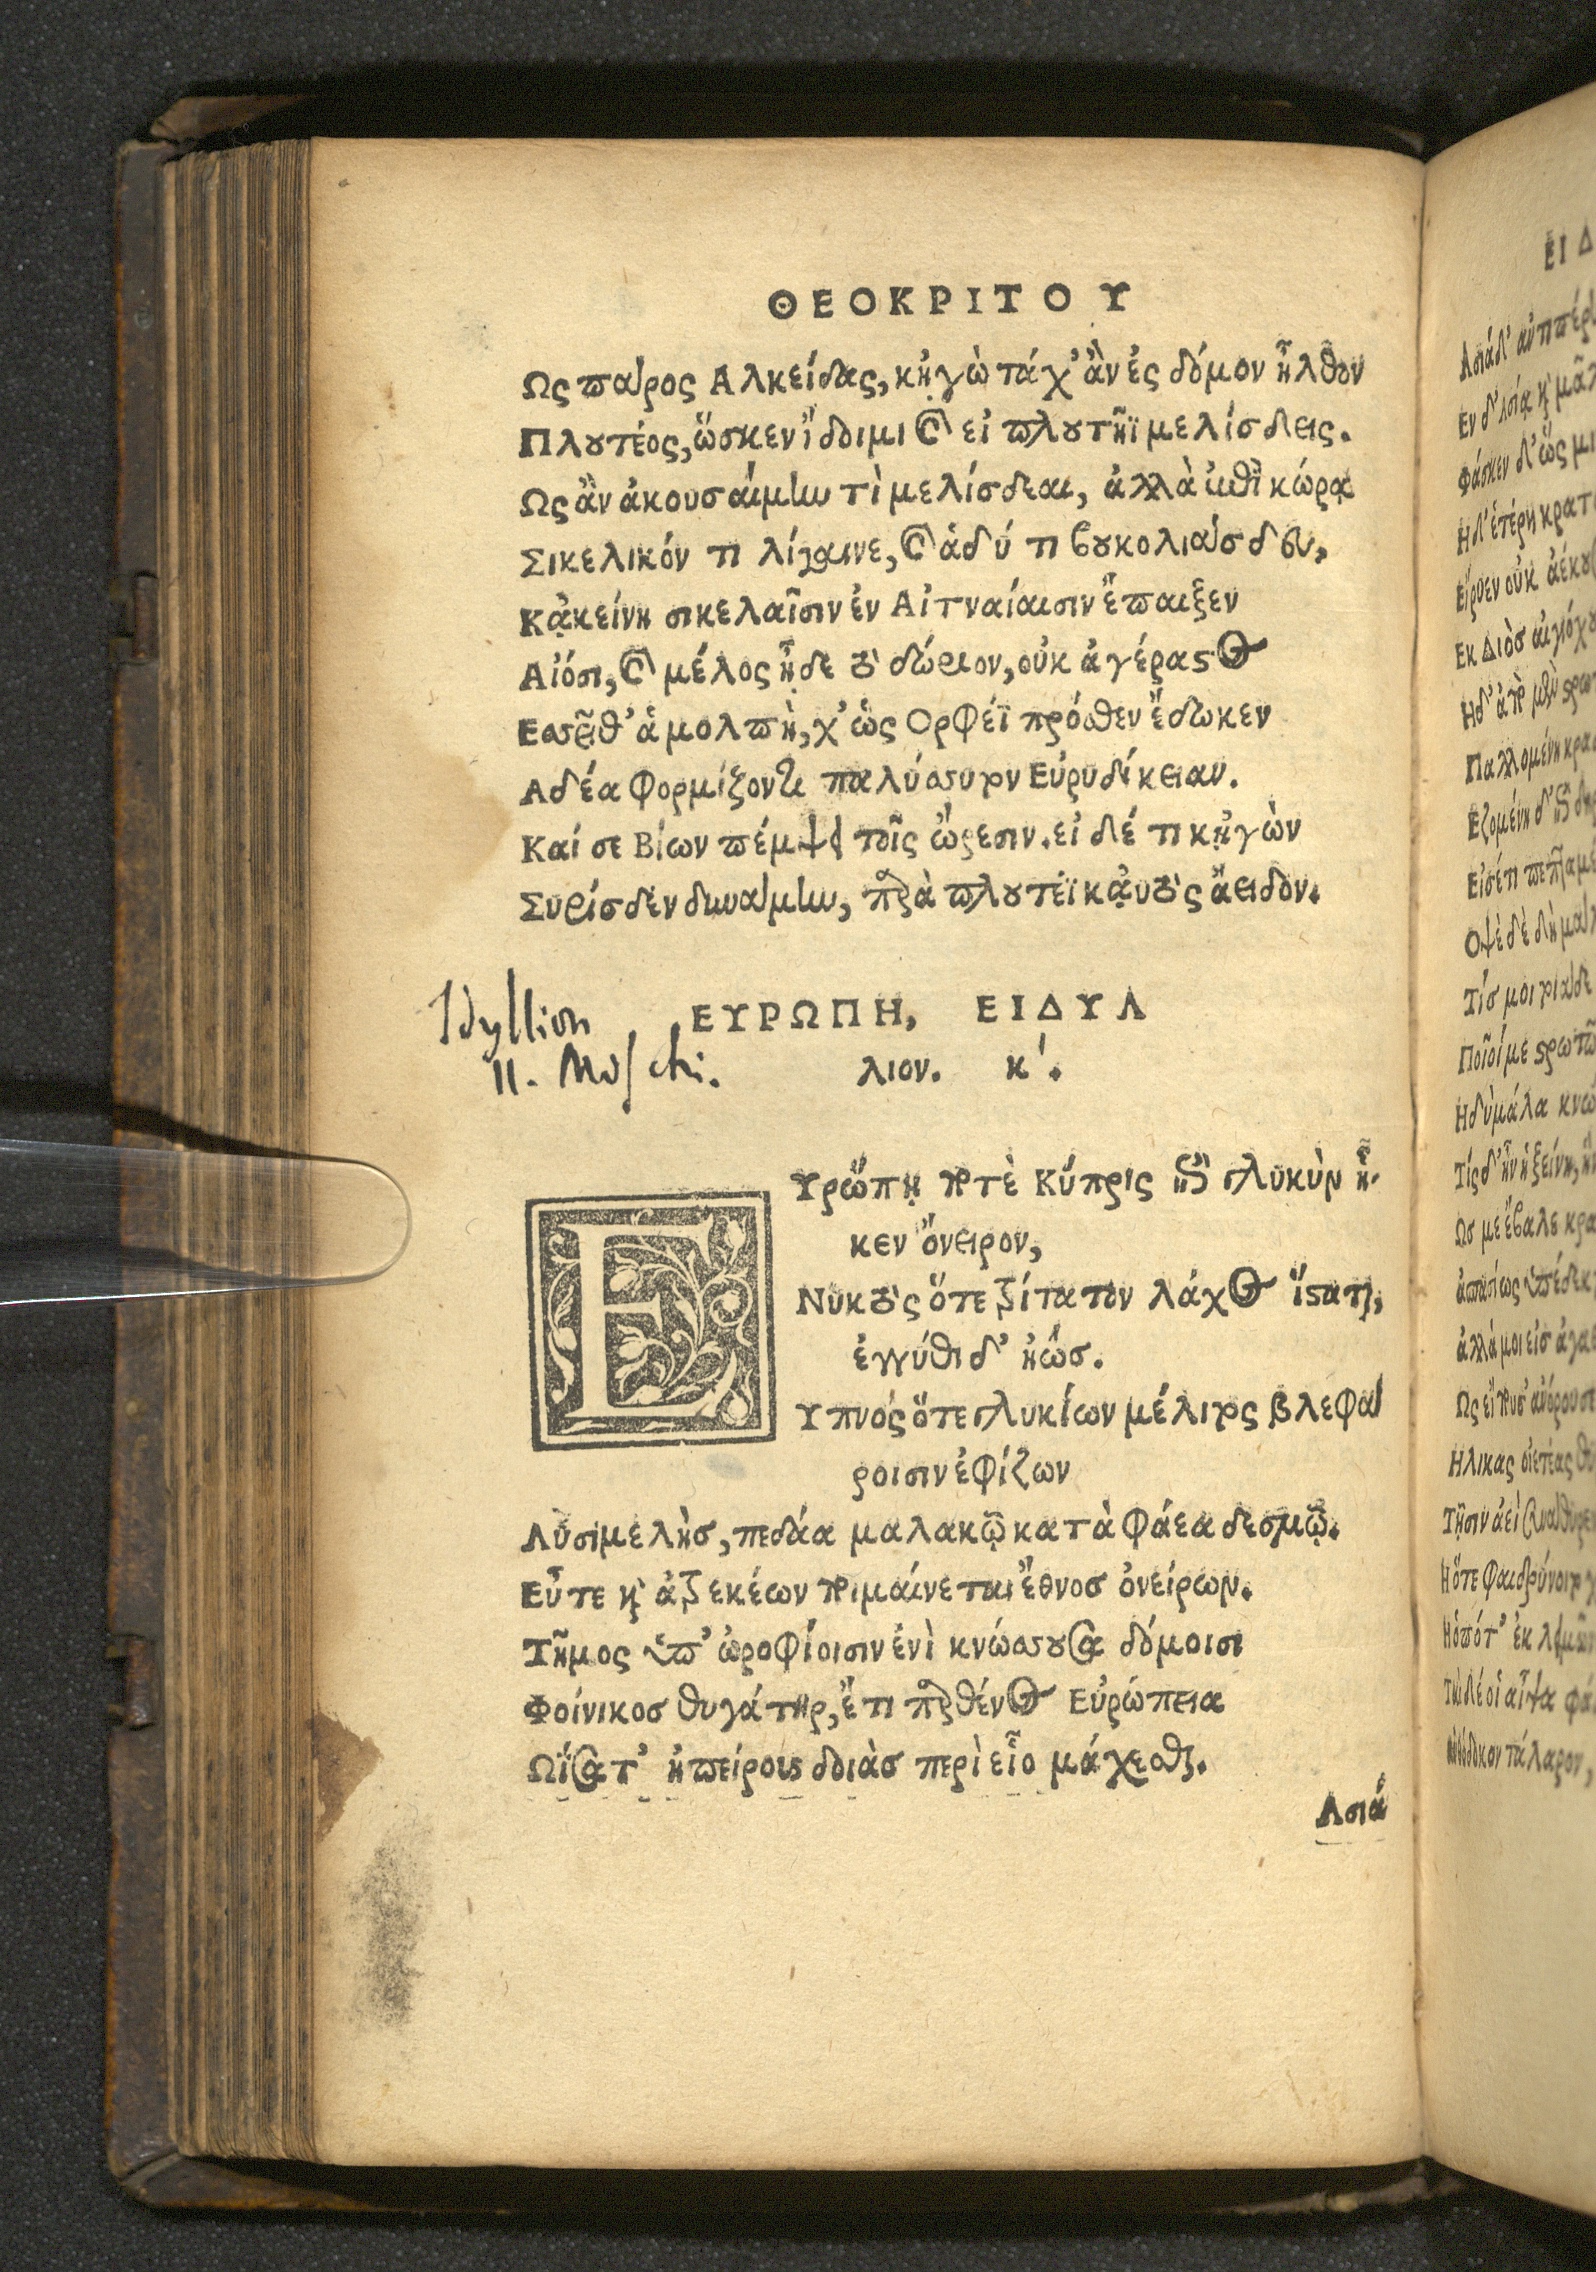 ΘΕΟΚΡΙΤΟΥ
Ως πάρος Αλκείδας, κᾐγὼ τάχ' ἂν ἐς δόμον ἦλθον
Πλουτέος, ὥς κεν ἴδοιμι καὶ εἰ πλουτῆϊ μελίσδεις.
Ως ἂν ἀκουσαίμην τὶ μελίσδεαι, ἀλλὰ κώρᾳ
Σικελικόν τι λίγαινε, καὶ ἁδύ τι βουκολιάσδευ,
Κᾀκείνη σικελαῖσιν ἐν Αἰτναίαισιν ἔπαιξεν
Αἰόσι, καὶ μέλος ᾖδε τὸ δώριον, οὐκ ἀγέραστος
Εσσεῖθ' ἁ μολπὴ, χ' ὡς Ορφέϊ πρόσθεν ἔδωκεν
Αδέα φορμίζοντι παλύσσυτον Εὐρυδίκειαν.
Καί σε Βίων πέμψει τοῖς ὤρεσιν. εἰ δέ τι κᾐγὼν
Συρίσδεν δυναίμην, παρὰ πλουτέϊ καὐτὸς ἄειδον.
Idyllion
II. Moschi.
ΕΥΡΩΠΗ, ΕΙΔΥΛ
λιον. κ'.
ΕΥρώπῃ ποτὲ Κύπρις ἐπὶ γλυκὺν ἧ-
κεν ὄνειρον,
Νυκτὸς ὅτε τρίτατον λάχος ἵσταται,
ἐγγύθι δ' ἠώσ.
Υπνος ὅτε γλυκίων μέλιτος βλεφά
ροισιν ἐφίζων
Λυσιμελὴσ, πεδάα μαλακῷ κατὰ φάεα δεσμῷ.
Εὖτε καὶ ἀτρεκέων ποιμαίνεται ἔθνοσ ὀνείρων.
Τῆμος ὑπ' ὠροφίοισιν ἐνὶ κνώσσουσα δόμοισι
Φοίνικοσ θυγάτηρ, ἔτι παρθένος Εὐρώπεια
Ωΐσατ' ἠπείρους δοιὰσ περὶ εἷο μάχεσθαι.
Ασιά